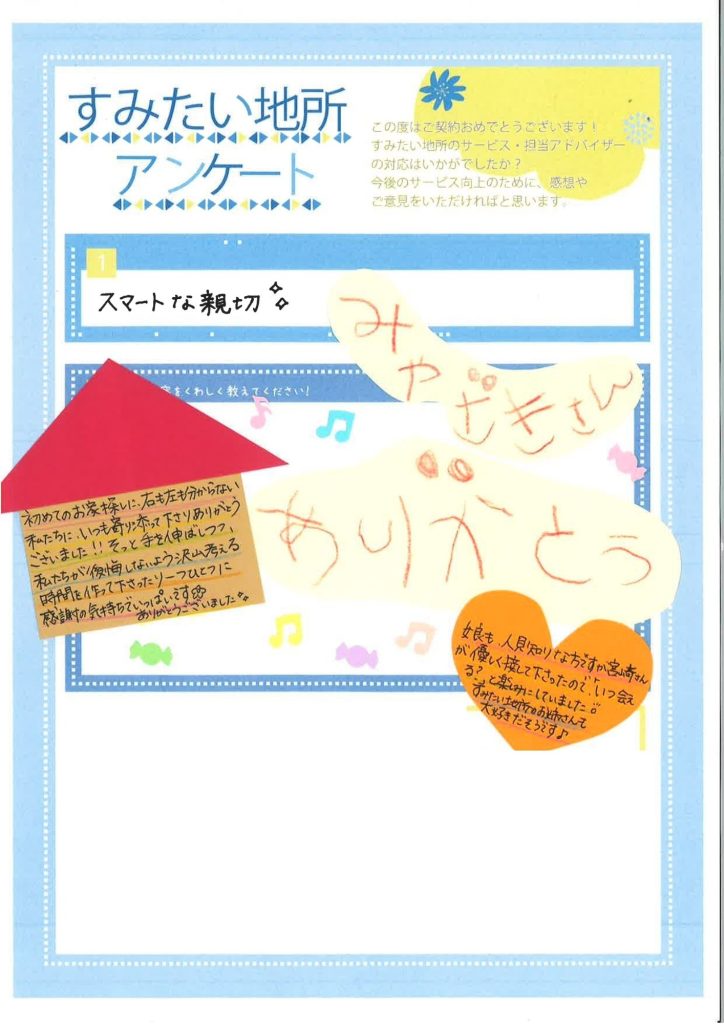 すみたい地所
アンケート
この度はご契約おめでとうございます！
すみたい地所のサービス・担当アドバイザー
の対応はいかがでしたか？
今後のサービス向上のために、感想や
ご意見をいただければと思います。
1
スマートな親切
みやざきさん
をくわしく教えてください！
ありがとう
初めてのお家探しに、右も左も分からない
私たちに、いつも寄り添って下さりありがとう
ございました!! そっと手を伸ばしつつ、
私たちが後悔しないよう沢山考える
時間を作って下さったり一つひとつに
感謝の気持ちでいっぱいです
ありがとうございました
娘も、人見知りな方ですが宮崎さん
が優しく接して下さったので、いつ会え
る？と楽しみにしていました
すみたい地所のお姉さんて
大好きだそうです♪